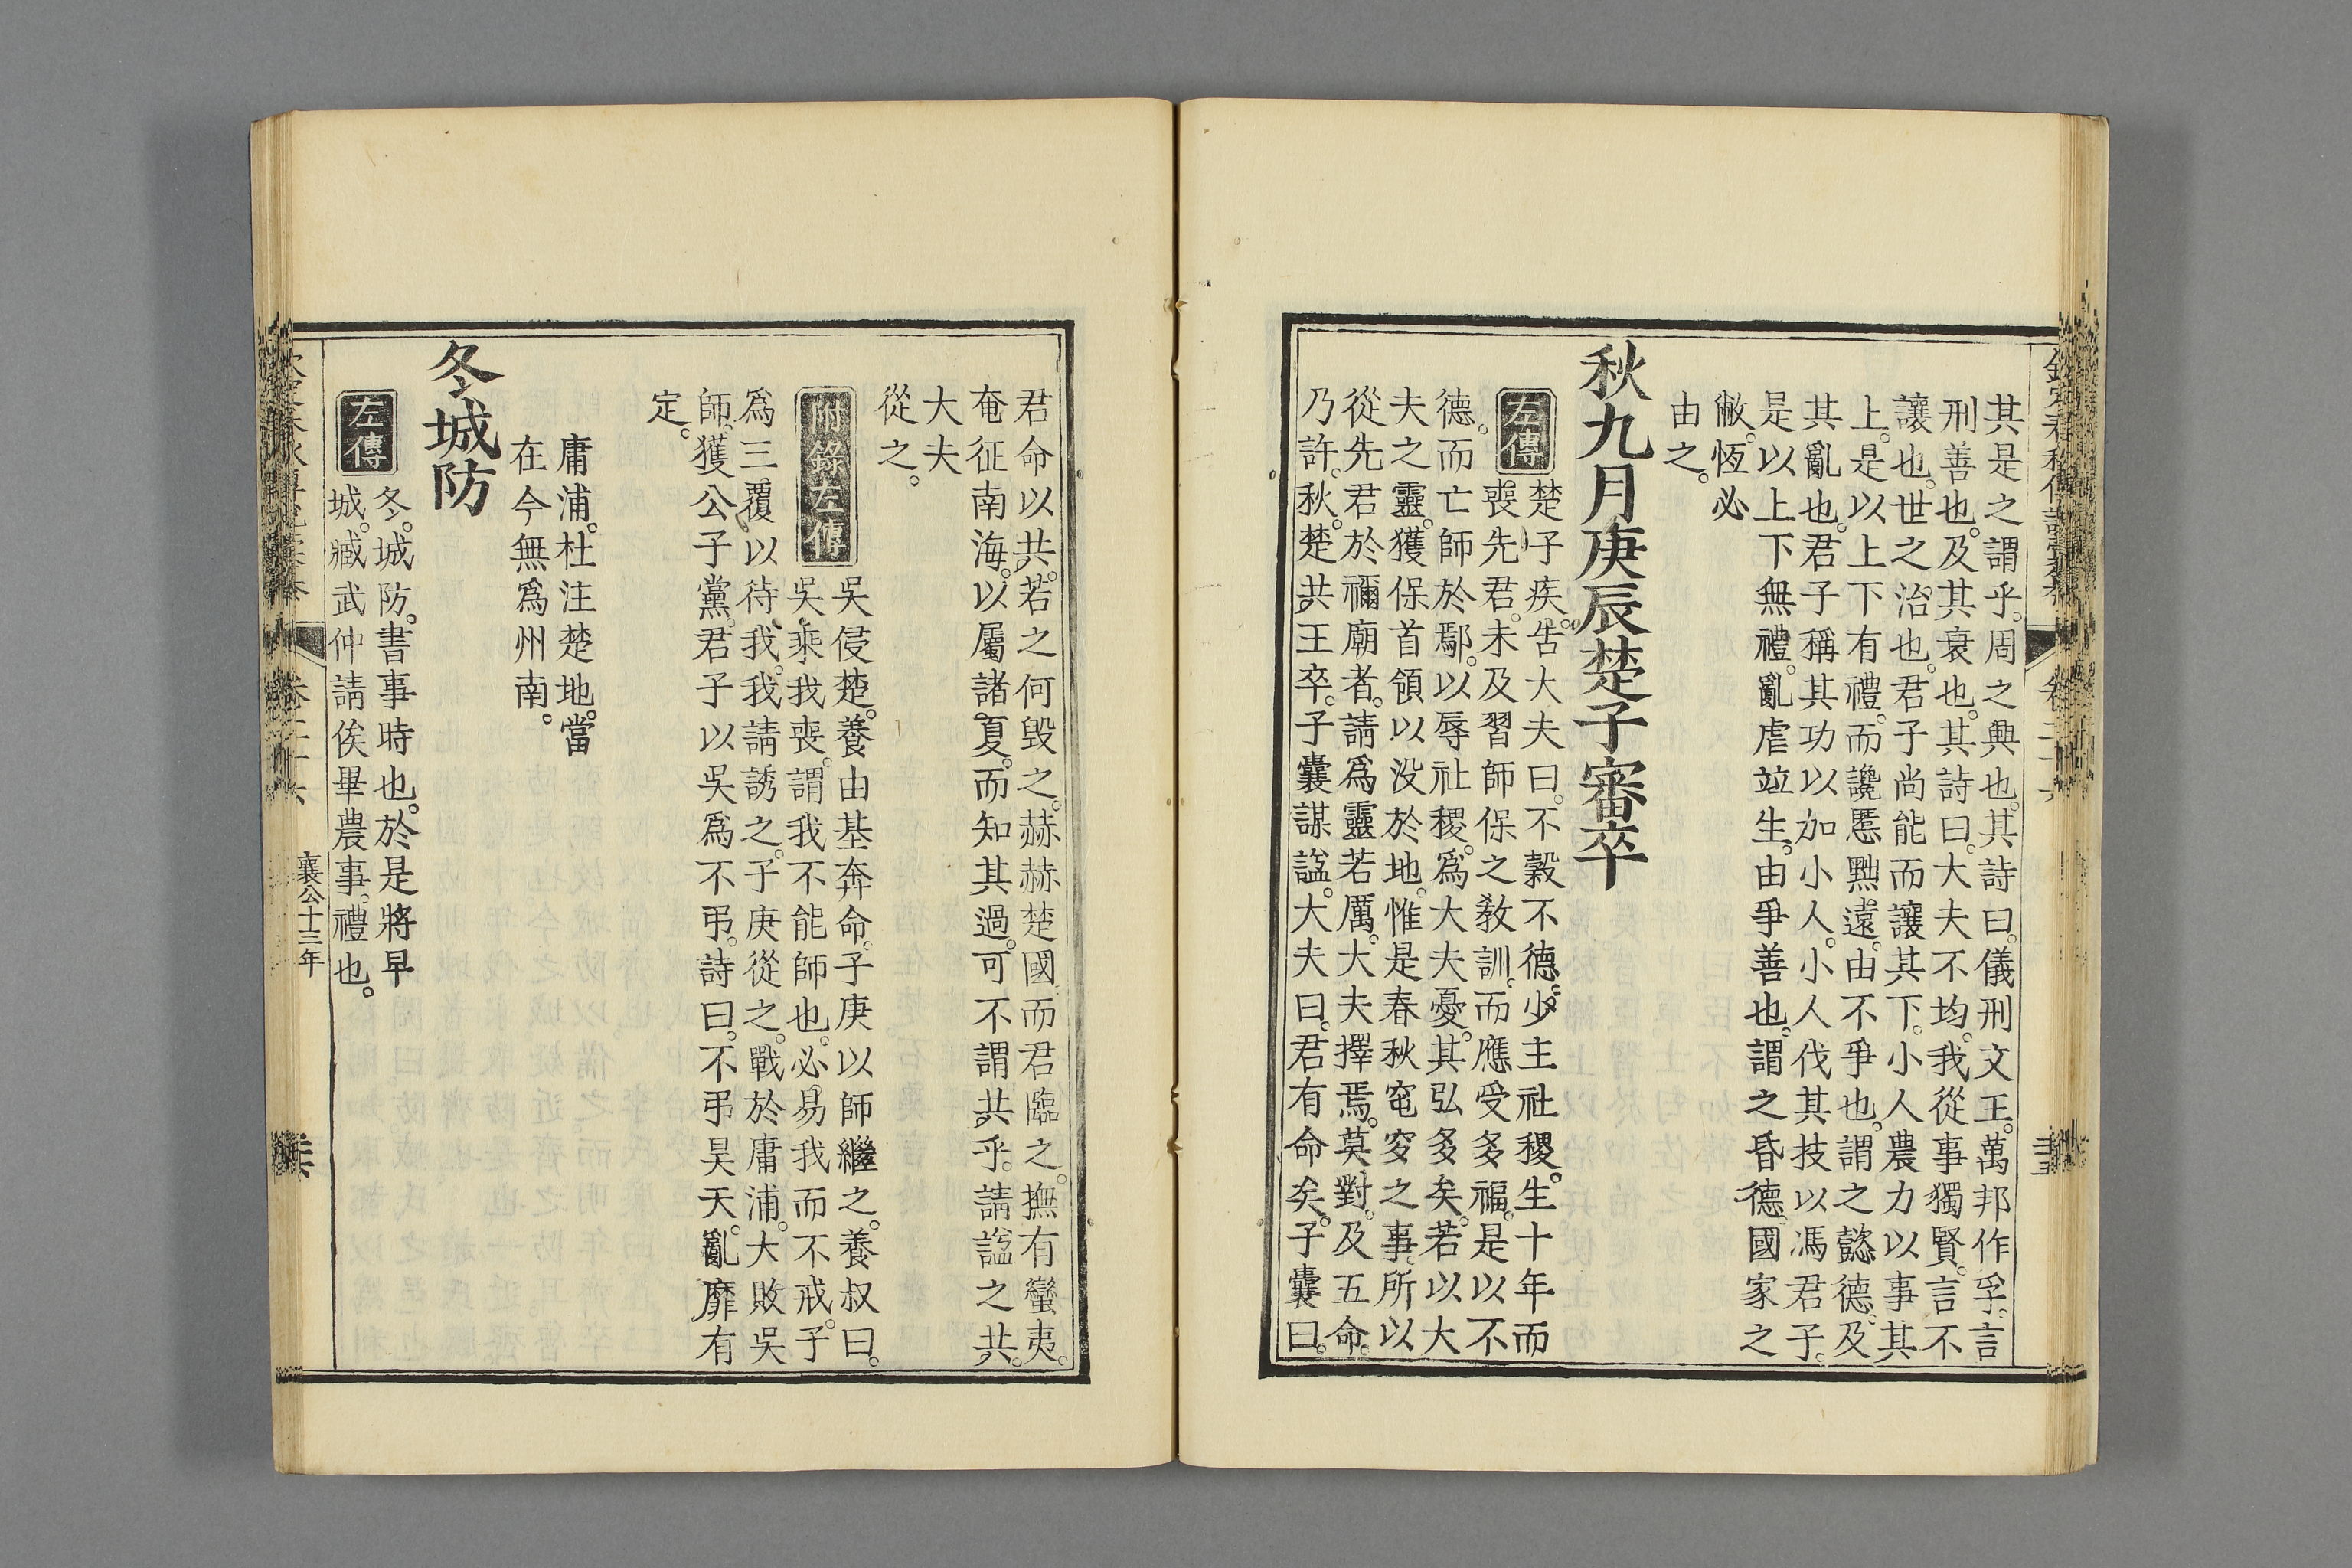 其是之謂乎。周之興也。其詩曰。儀刑文王。萬邦作孚。言
刑善也。及其衰也。其詩曰。大夫不均。我從事獨賢。言不
讓也。世之治也。君子尚能而讓其下。小人農力以事其
上。是以上下有禮。而讒慝黜遠。由不爭也。謂之懿德。及
其亂也。君子稱其功以加小人。小人伐其技以馮君子。
是以上下無禮。亂虐竝生。由爭善也。謂之昏德。國家之
敝。恆必
由之。
秋九月庚辰楚子審卒
左傳
楚子疾。告大夫曰。不穀不德。少主社稷。生十年而
喪先君。未及習師保之敎訓。而應受多福。是以不
德。而亡師於鄢。以辱社稷。爲大夫憂。其弘多矣。若以大
夫之靈。獲保首領以没於地。惟是春秋窀穸之事。所以
從先君於禰廟者。請爲靈若厲。大夫擇焉。莫對。及五命。
乃許。秋。楚共王卒。子囊謀諡。大夫曰。君有命矣。子囊曰。
君命以共。若之何毀之。赫赫楚國而君臨之。撫有蠻夷。
奄征南海。以屬諸夏。而知其過。可不謂共乎。請諡之共。
大夫
從之。
附錄左傳
吳侵楚。養由基奔命。子庚以師繼之。養叔曰。
吳乘我喪。謂我不能師也。必易我而不戒。子
爲三覆以待我。我請誘之。子庚從之。戰於庸浦。大敗吳
師。獲公子黨。君子以吳爲不弔。詩曰。不弔昊天。亂靡有
定。
庸浦。杜注楚地。當
在今無爲州南。
冬城防
左傳
冬。城防。書事時也。於是將早
城。臧武仲請俟畢農事。禮也。
襄公十三年